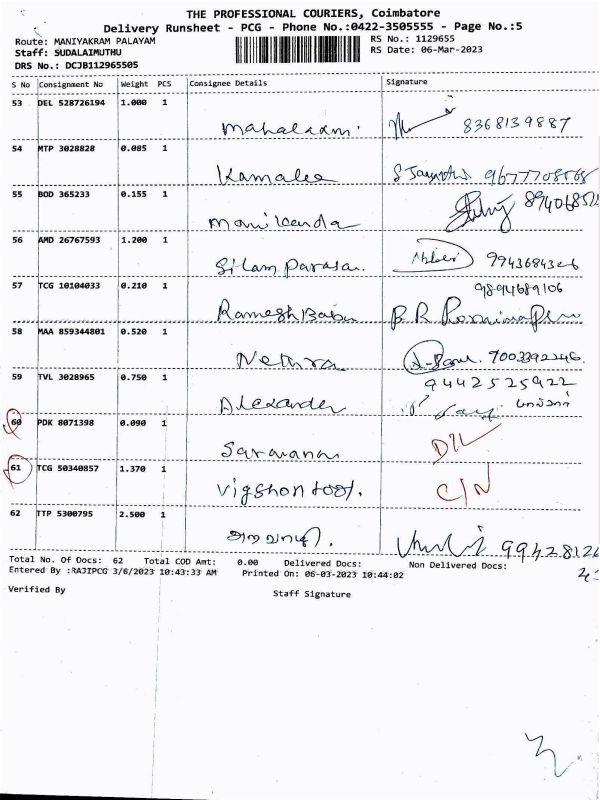 THE PROFESSIONAL COURIERS, Coimbatore
Delivery Runsheet - PCG - Phone No.:0422-3505555 - Page No.:5
Route: MANIYAKRAM PALAYAM
RS No.: 1129655
Staff: SUDALAIMUTHU
RS Date: 06-Mar-2023
DRS No.: DCJB112965505
S No Consignment No Weight PCS Consignee Details Signature
53 DEL 528726194 1.000 1
Mahalaxmi 8368139887
54 MTP 3028828 0.085 1
Kamalee
55 BOD 365233 0.155 1
Manikanda
56 AMD 26767593 1.200 1
Silamparasan. 9943684326
57 TCG 10104033 0.210 1
9894689106
Ramesh Babu B R
58 MAA 859344801 0.520 1
Nethra 7003392246
59 TVL 3028965 0.750 1
9442525922
Alexander
60 PDK 8071398 0.090 1
Saravanan D/L
61 TCG 50340857 1.370 1
C/N
62 TTP 5300795 2.500 1
9942812
Total No. Of Docs: 62 Total COD Amt: 0.00 Delivered Docs: Non Delivered Docs:
Entered By :RAJIPCG 3/6/2023 10:43:33 AM Printed On: 06-03-2023 10:44:02
Verified By
Staff Signature